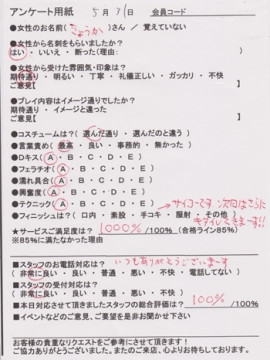 アンケート用紙 5月7日 会員コード
●女性のお名前(きょうか)さん / 覚えていない
●女性から名刺をもらいましたか?
はい・いいえ・断った(理由: )
●女性から受けた雰囲気・印象は?
期待通り・明るい・丁寧・礼儀正しい・ガッカリ・不快
ご意見】
●プレイ内容はイメージ通りでしたか?
期待通り・イメージと違った
ご意見】
●コスチュームは?(選んだ通り・選んだのと違う)
●言葉責め(最高・良い・事務的・無かった)
●Dキス(A・B・C・D・E)
●フェラチオ(A・B・C・D・E)
●濡れ具合(A・B・C・D・E)
●興奮度(A・B・C・D・E)
●テクニック(A・B・C・D・E) サイコーです!次回はさらに
●フィニッシュは?(口内・素股・手コキ・顔射・その他)
★サービス満足度は? 1000%/100%(合格ライン85%)
※85%に満たなかった理由
■スタッフのお電話対応は? いつもありがとうございまーす
(非常に良い・良い・普通・悪い・不快・電話してない)
■スタッフの受付対応は?
(非常に良い・良い・普通・悪い・不快)
■本日対応させて頂きましたスタッフの総合評価は?100%/100%
■イベントなどのご意見、ご要望を是非お聞かせ下さい
お客様の貴重なリクエストをご参考にさせて頂きます!
ご協力ありがとうございました。またのご来店、心よりお待ちしております。